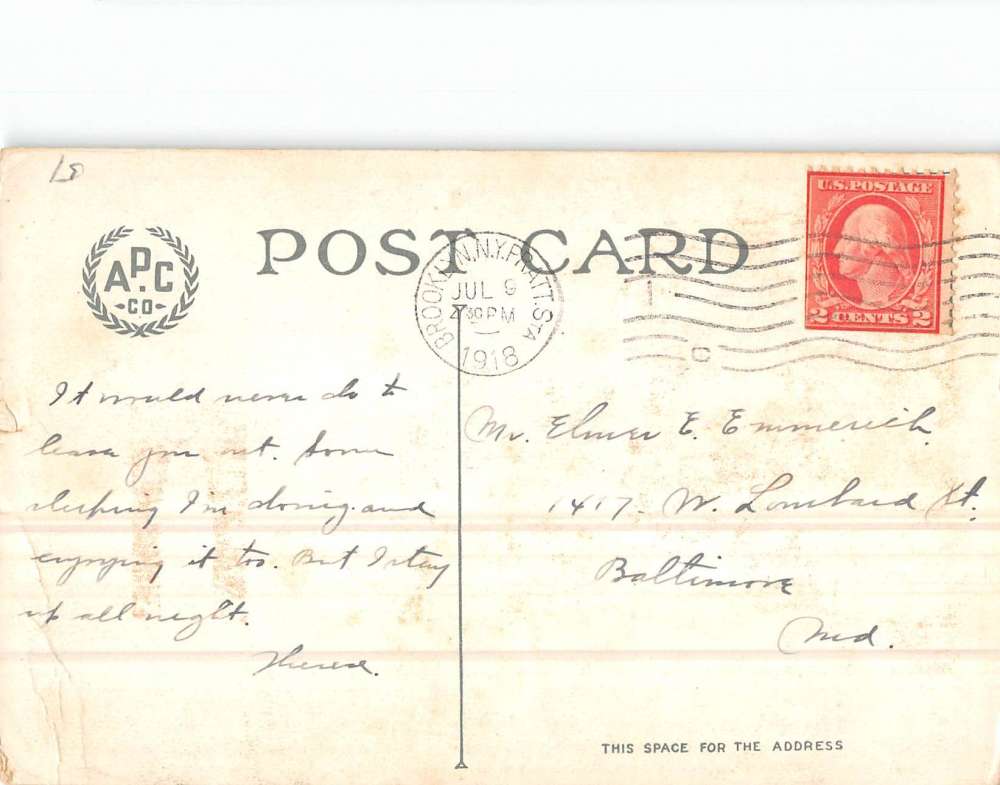 POST CARD
U.S. POSTAGE
2 CENTS 2
A.P.C.
CO
BROOKLYN, N.Y. PRATT. STA
JUL 9
2 30 PM
1918
It would never do to
leave you out. Some
sleeping I'm doing and
enjoying it too. But I stay
up all night.
Theresa.
Mr. Elmer E. Emmerich.
1417 W. Lombard St.
Baltimore
Md.
THIS SPACE FOR THE ADDRESS